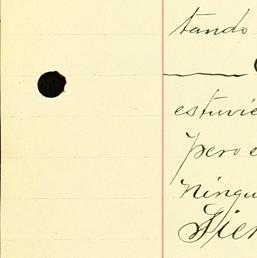 tando
estuvie
pero e
ningu
Sien